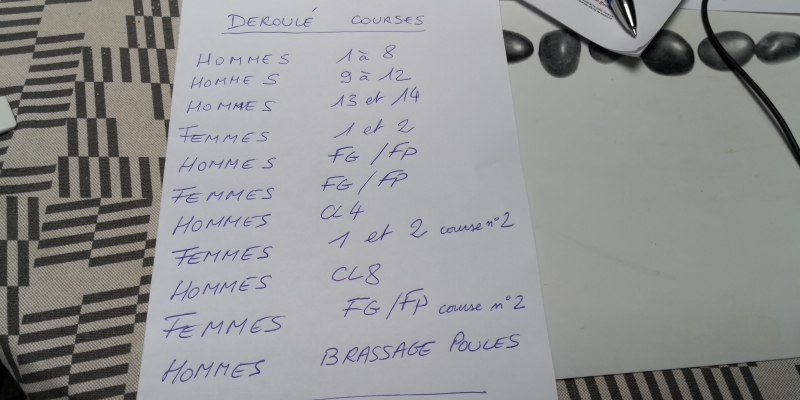 DEROULÉ COURSES
HOMMES 1 à 8
HOMMES 9 à 12
HOMMES 13 et 14
FEMMES 1 et 2
HOMMES FG / FP
FEMMES FG / FP
HOMMES CL4
FEMMES 1 et 2 course n°2
HOMMES CL8
FEMMES FG / FP course n°2
HOMMES BRASSAGE POULES